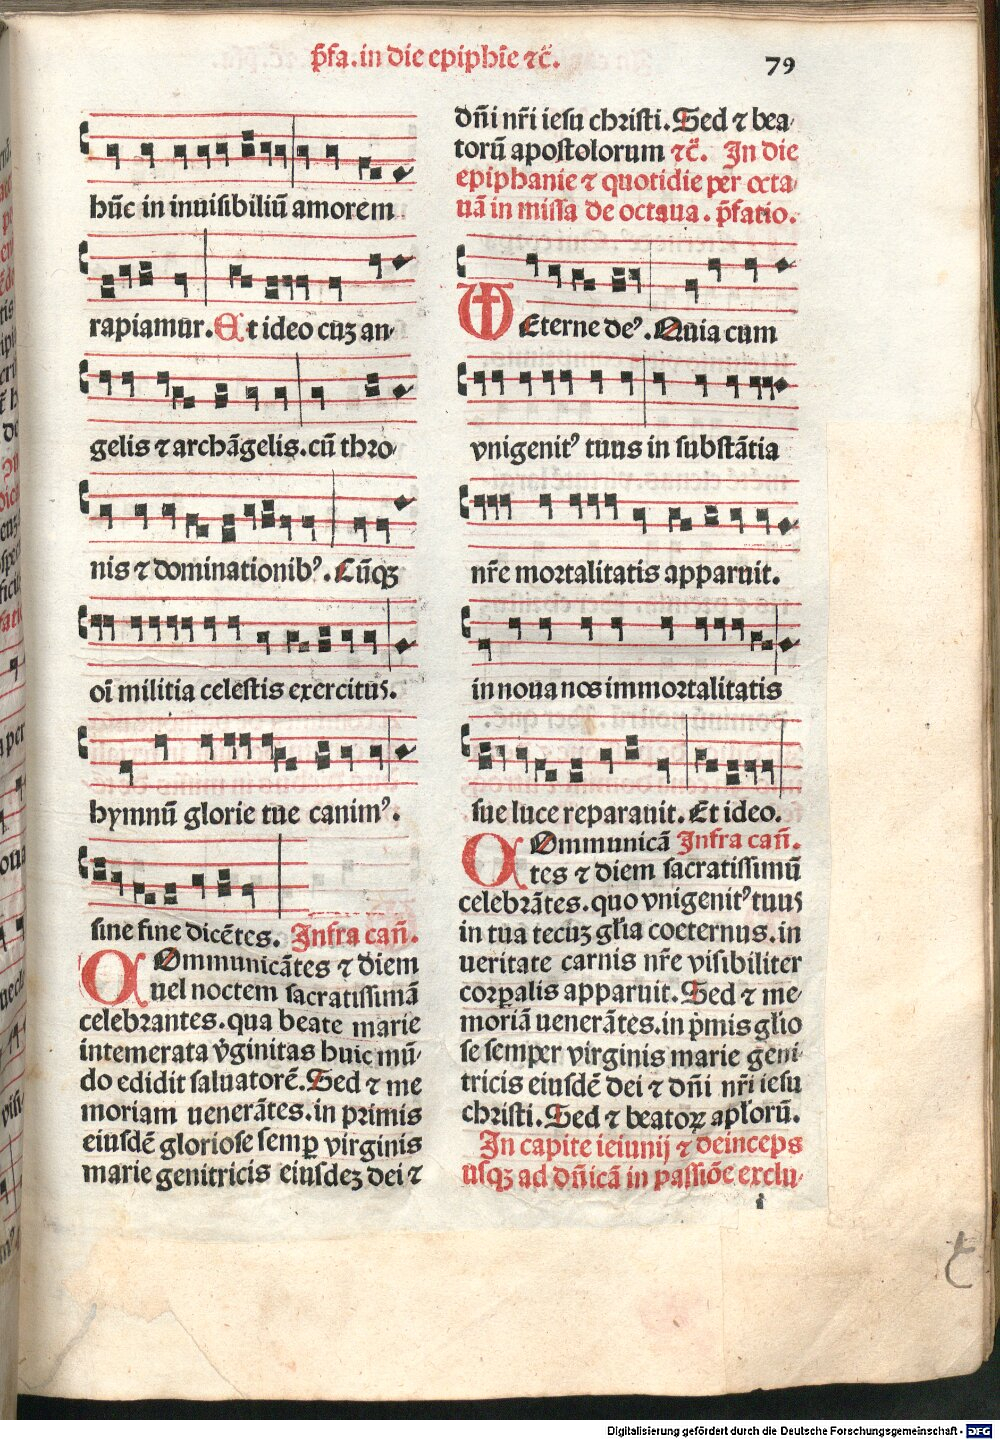 p̄fa. in die epiphīe ⁊c̄.
79
hūc in inuisibiliū amorem
rapiamur. Et ideo cuʒ an-
gelis ⁊ archāgelis. cū thro-
nis ⁊ dominationibꝰ. Cūqꝫ
oī militia celestis exercitus.
hymnū glorie tue canimꝰ.
sine fine dicētes. Infra cań.
COmmunicātes ⁊ diem
uel noctem sacratissimā
celebrantes. qua beate marie
intemerata v̓ginitas huic mū-
do edidit saluatorē. Sed ⁊ me
moriam uenerātes. in primis
eiusdē gloriose semꝑ virginis
marie genitricis eiusdeʒ dei ⁊
dn̄i nr̄i iesu christi. Sed ⁊ bea-
torū apostolorum ⁊c̄. In die
epiphanie ⁊ quotidie per octa-
uā in missa de octaua. p̄fatio.
Eterne deꝰ. Quia cum
vnigenitꝰ tuus in substātia
nr̄e mortalitatis apparuit.
in noua nos immortalitatis
sue luce reparauit. Et ideo.
COmmunicā Infra cań.
tes ⁊ diem sacratissimū
celebrātes. quo vnigenitꝰ tuus
in tua tecuʒ glīa coeternus. in
ueritate carnis nr̄e visibiliter
corꝑalis apparuit. Sed ⁊ me-
moriā uenerātes. in p̓mis glīo
se semper virginis marie geni-
tricis eiusdē dei ⁊ dn̄i nr̄i iesu
christi. Sed ⁊ beatoꝝ apl̓orū.
In capite ieiunij ⁊ deinceps
usqꝫ ad dn̄icā in passiōe exclu-
i
Digitalisierung gefördert durch die Deutsche Forschungsgemeinschaft - DFG